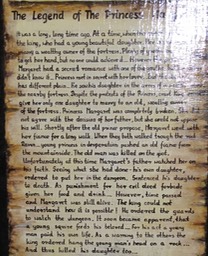 The Legend of The Princess
It was a long, long time ago. At a time, when
the king, who had a young beautiful daughter,
a wealthy owner of the fortress.
to get her hand, but no one could achieve it. However
Margaret had a secret romance with one of
didn't know it. Princess met in secret with her lover. But
has different plans. He
the nearby fortress. Despite the protests of the Princess,
give her only one daughter to marry to an old, wealthy owner
of the fortress. Princess Margaret was completely
agree with the decision of her father, but she could not oppose
his will. Shortly after the old prince propose, Margaret went with
her fiance for a long walk. When they both walked through the
young princess in desperation pushed an old fiance from
the mountainside. The old man was killed on the spot.
Unfortunately at this time Margaret's father watched her on
his path. Seeing what she had done - his own daughter,
ordered to put her in the dungeon. Sentenced his daughter
to death. As punishment for her evil deed forbids
given her food and drink. However, time passed
and Margaret was still alive. The king could not
understand how is it possible! He ordered the guards
to watch the dungeon. It soon became apparent, that
a young squire feeds his beloved... for his act a young
man paid his own life. As a warning to the others the
king ordered hang the young man's head on a rock...
And thus killed his daughter too...